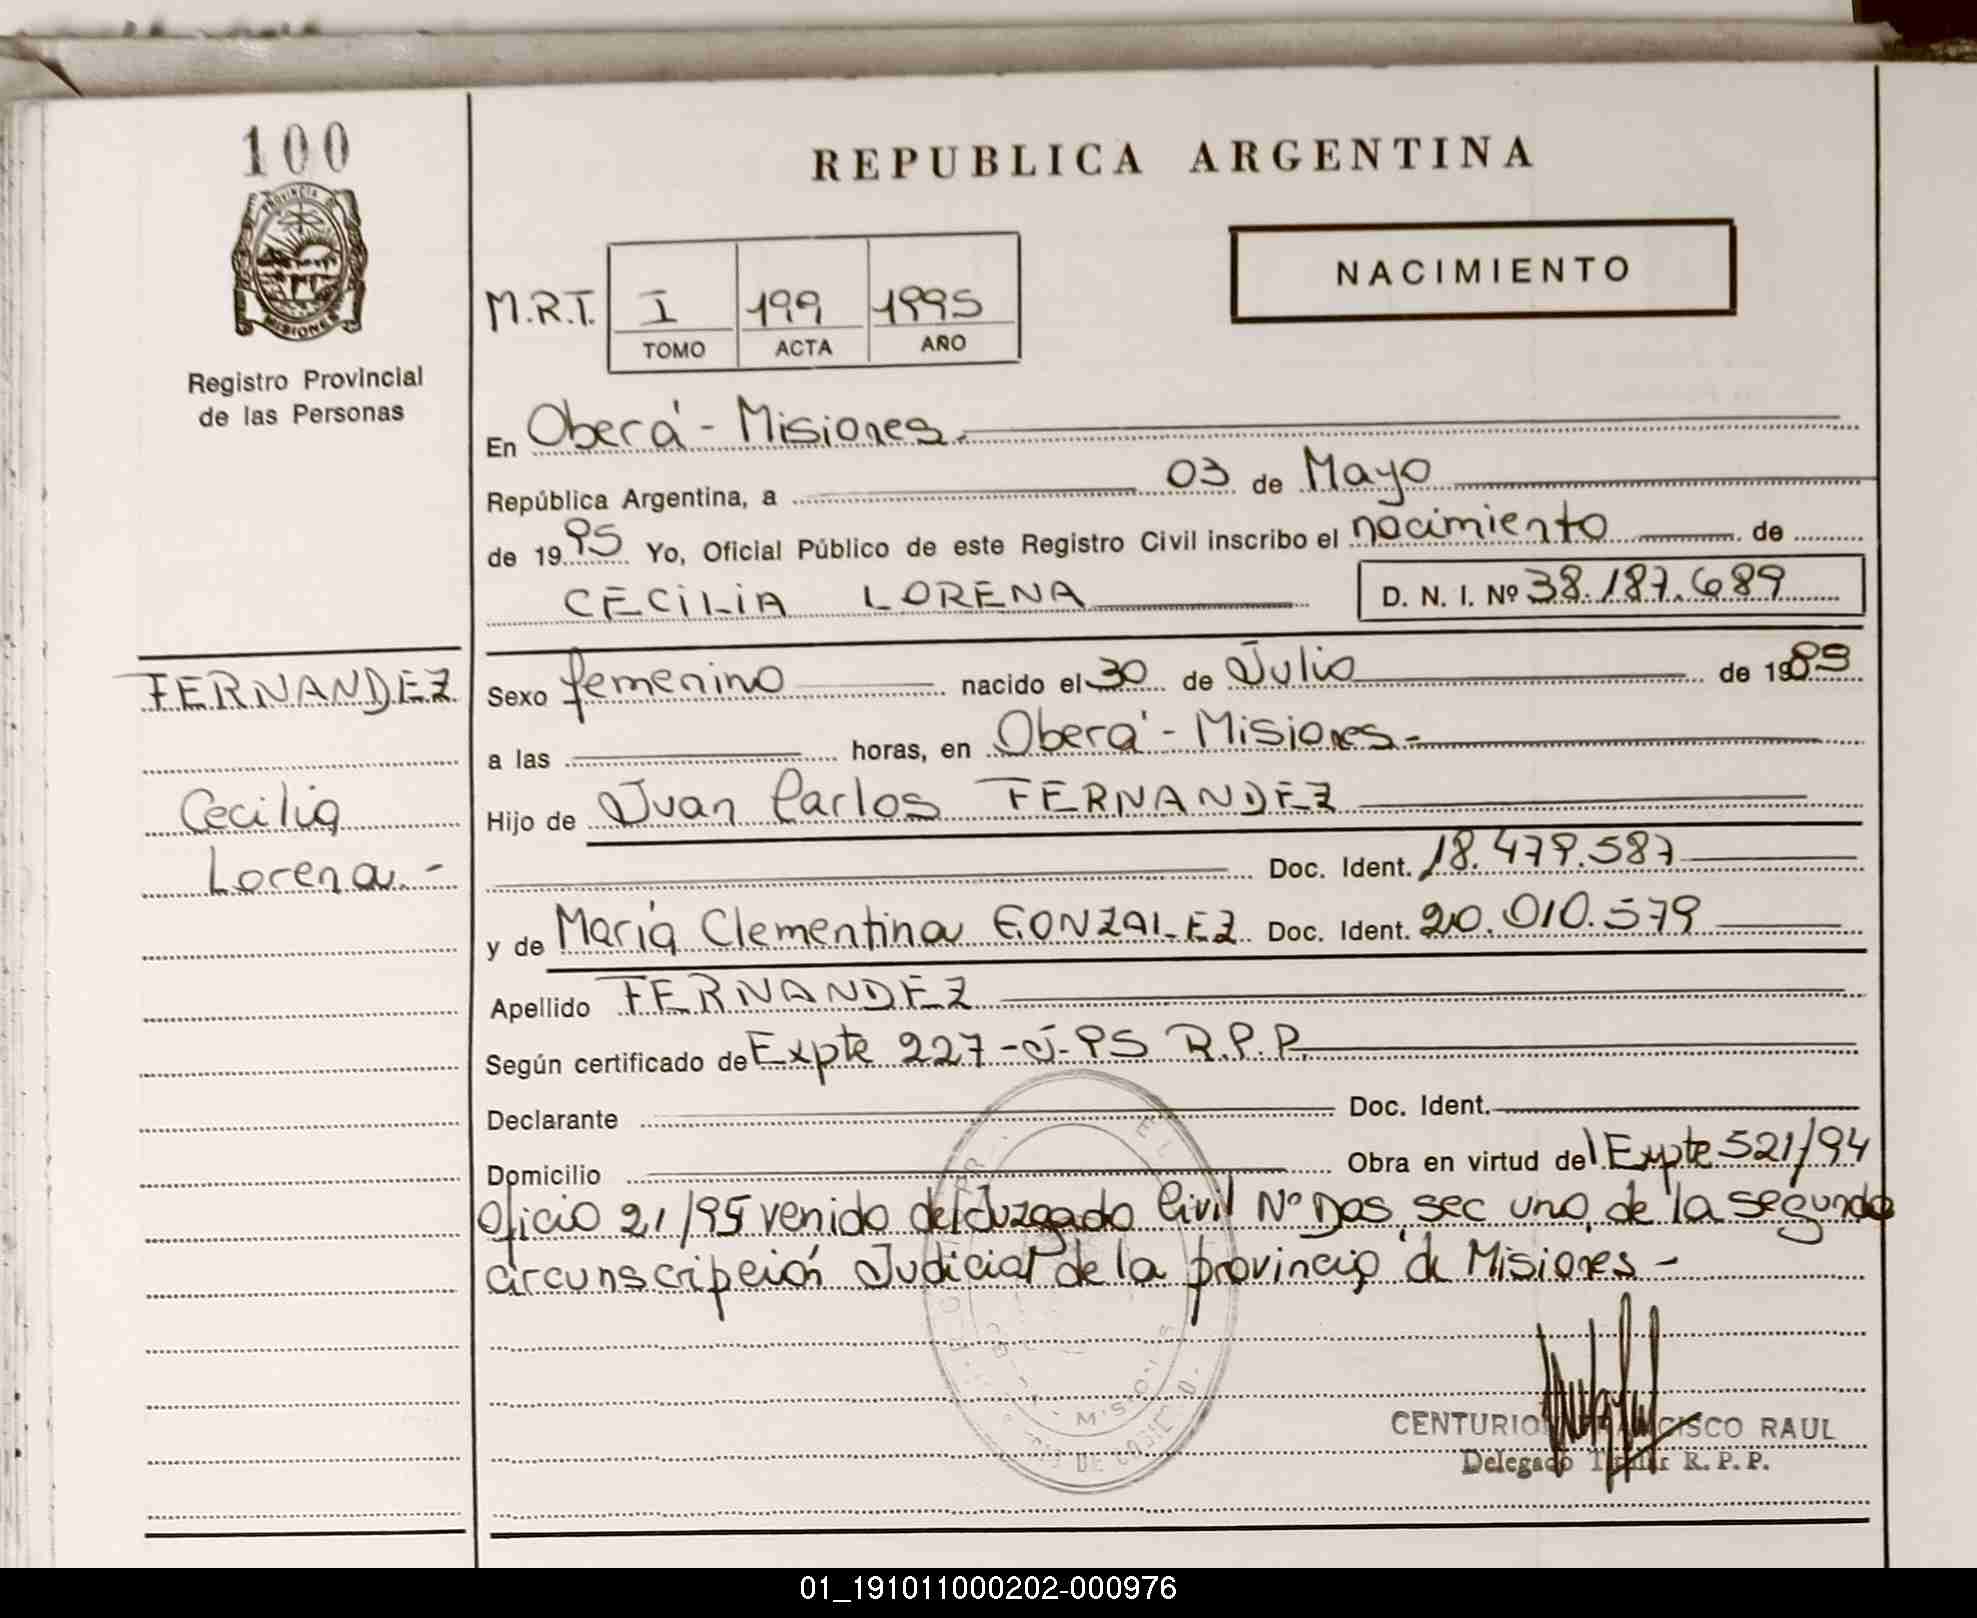 100
PROVINCIA DE
MISIONES
Registro Provincial
de las Personas
REPUBLICA ARGENTINA
NACIMIENTO
M.R.T. I 199 1995
TOMO ACTA AÑO
En Oberá - Misiones.
República Argentina, a 03 de Mayo
de 1995 Yo, Oficial Público de este Registro Civil inscribo el nacimiento de
CECILIA LORENA D. N. I. Nº 38.187.689
FERNANDEZ
Cecilia
Lorena.-
Sexo femenino nacido el 30 de Julio de 1989
a las horas, en Oberá - Misiones-
Hijo de Juan Carlos FERNANDEZ
Doc. Ident. 18.479.587
y de María Clementina GONZALEZ Doc. Ident. 20.010.579
Apellido FERNANDEZ
Según certificado de Expte 227-J-95 R.P.P.
Declarante Doc. Ident.
Domicilio Obra en virtud del Expte 521/94
Oficio 21/95 venido del Juzgado Civil Nº Dos, sec uno, de la segunda
circunscripción Judicial de la provincia de Misiones -
CENTURION FRANCISCO RAUL
Delegado Titular R. P. P.
01_191011000202-000976